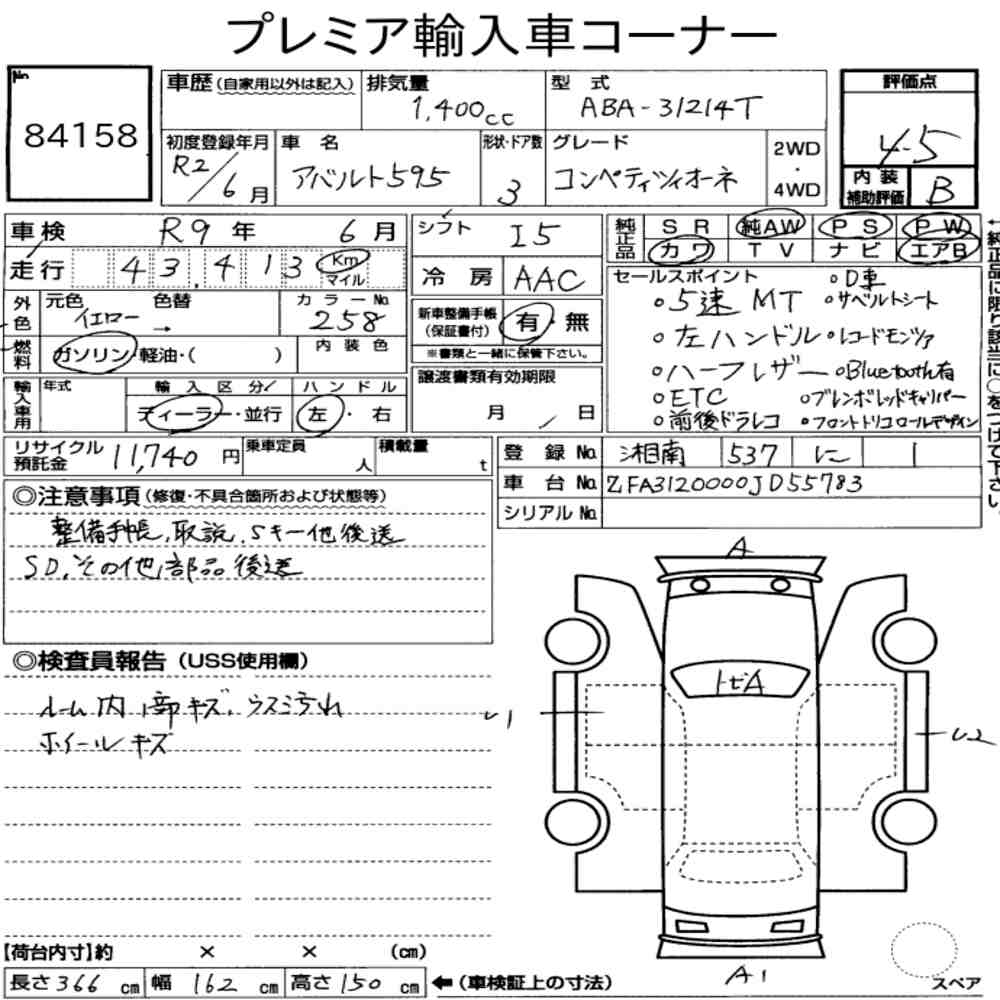 プレミア輸入車コーナー
No.
84158
車歴（自家用以外は記入）
排気量
1,400cc
型 式
ABA-31214T
評価点
4.5
初度登録年月
R2/6月
車 名
アバルト595
形状・ドア数
3
グレード
コンペティツィオーネ
2WD
・
4WD
内 装
補助評価
B
車検 R9年 6月
走行 43,413 Km
マイル
シフト I5
冷 房 AAC
純正品
SR 純AW PS PW
カワ TV ナビ エアB
←純正品に限り該当に○をつけて下さい。
外色
元色 イエロー
色替 →
カラーNo.
258
燃料
ガソリン・軽油・（ ）
内 装 色
新車整備手帳
（保証書付）
有・無
※書類と一緒に保管下さい。
セールスポイント
○D車
○5速MT
○サベルトシート
○左ハンドル
○レコードモンツァ
○ハーフレザー
○Bluetooth有
○ETC
○ブレンボレッドキャリパー
○前後ドラレコ
○フロントトリコロールデザイン
輸入車用
年式
輸 入 区 分
ディーラー・並行
ハ ン ド ル
左・右
譲渡書類有効期限
月 日
リサイクル
預託金
11,740円
乗車定員
人
積載量
t
登 録 No. 湘南 537 に 1
車 台 No. ZFA3120000JD55783
シリアル No.
◎注意事項（修復・不具合箇所および状態等）
整備手帳,取説,Sキー他後送
SD,その他部品後送
◎検査員報告（USS使用欄）
ルーム内1部キズ,ウスミ汚れ
ホイールキズ
A
トビA
A1
スペア
【荷台内寸】約 × × （cm）
長さ366cm 幅162cm 高さ150cm ←（車検証上の寸法）